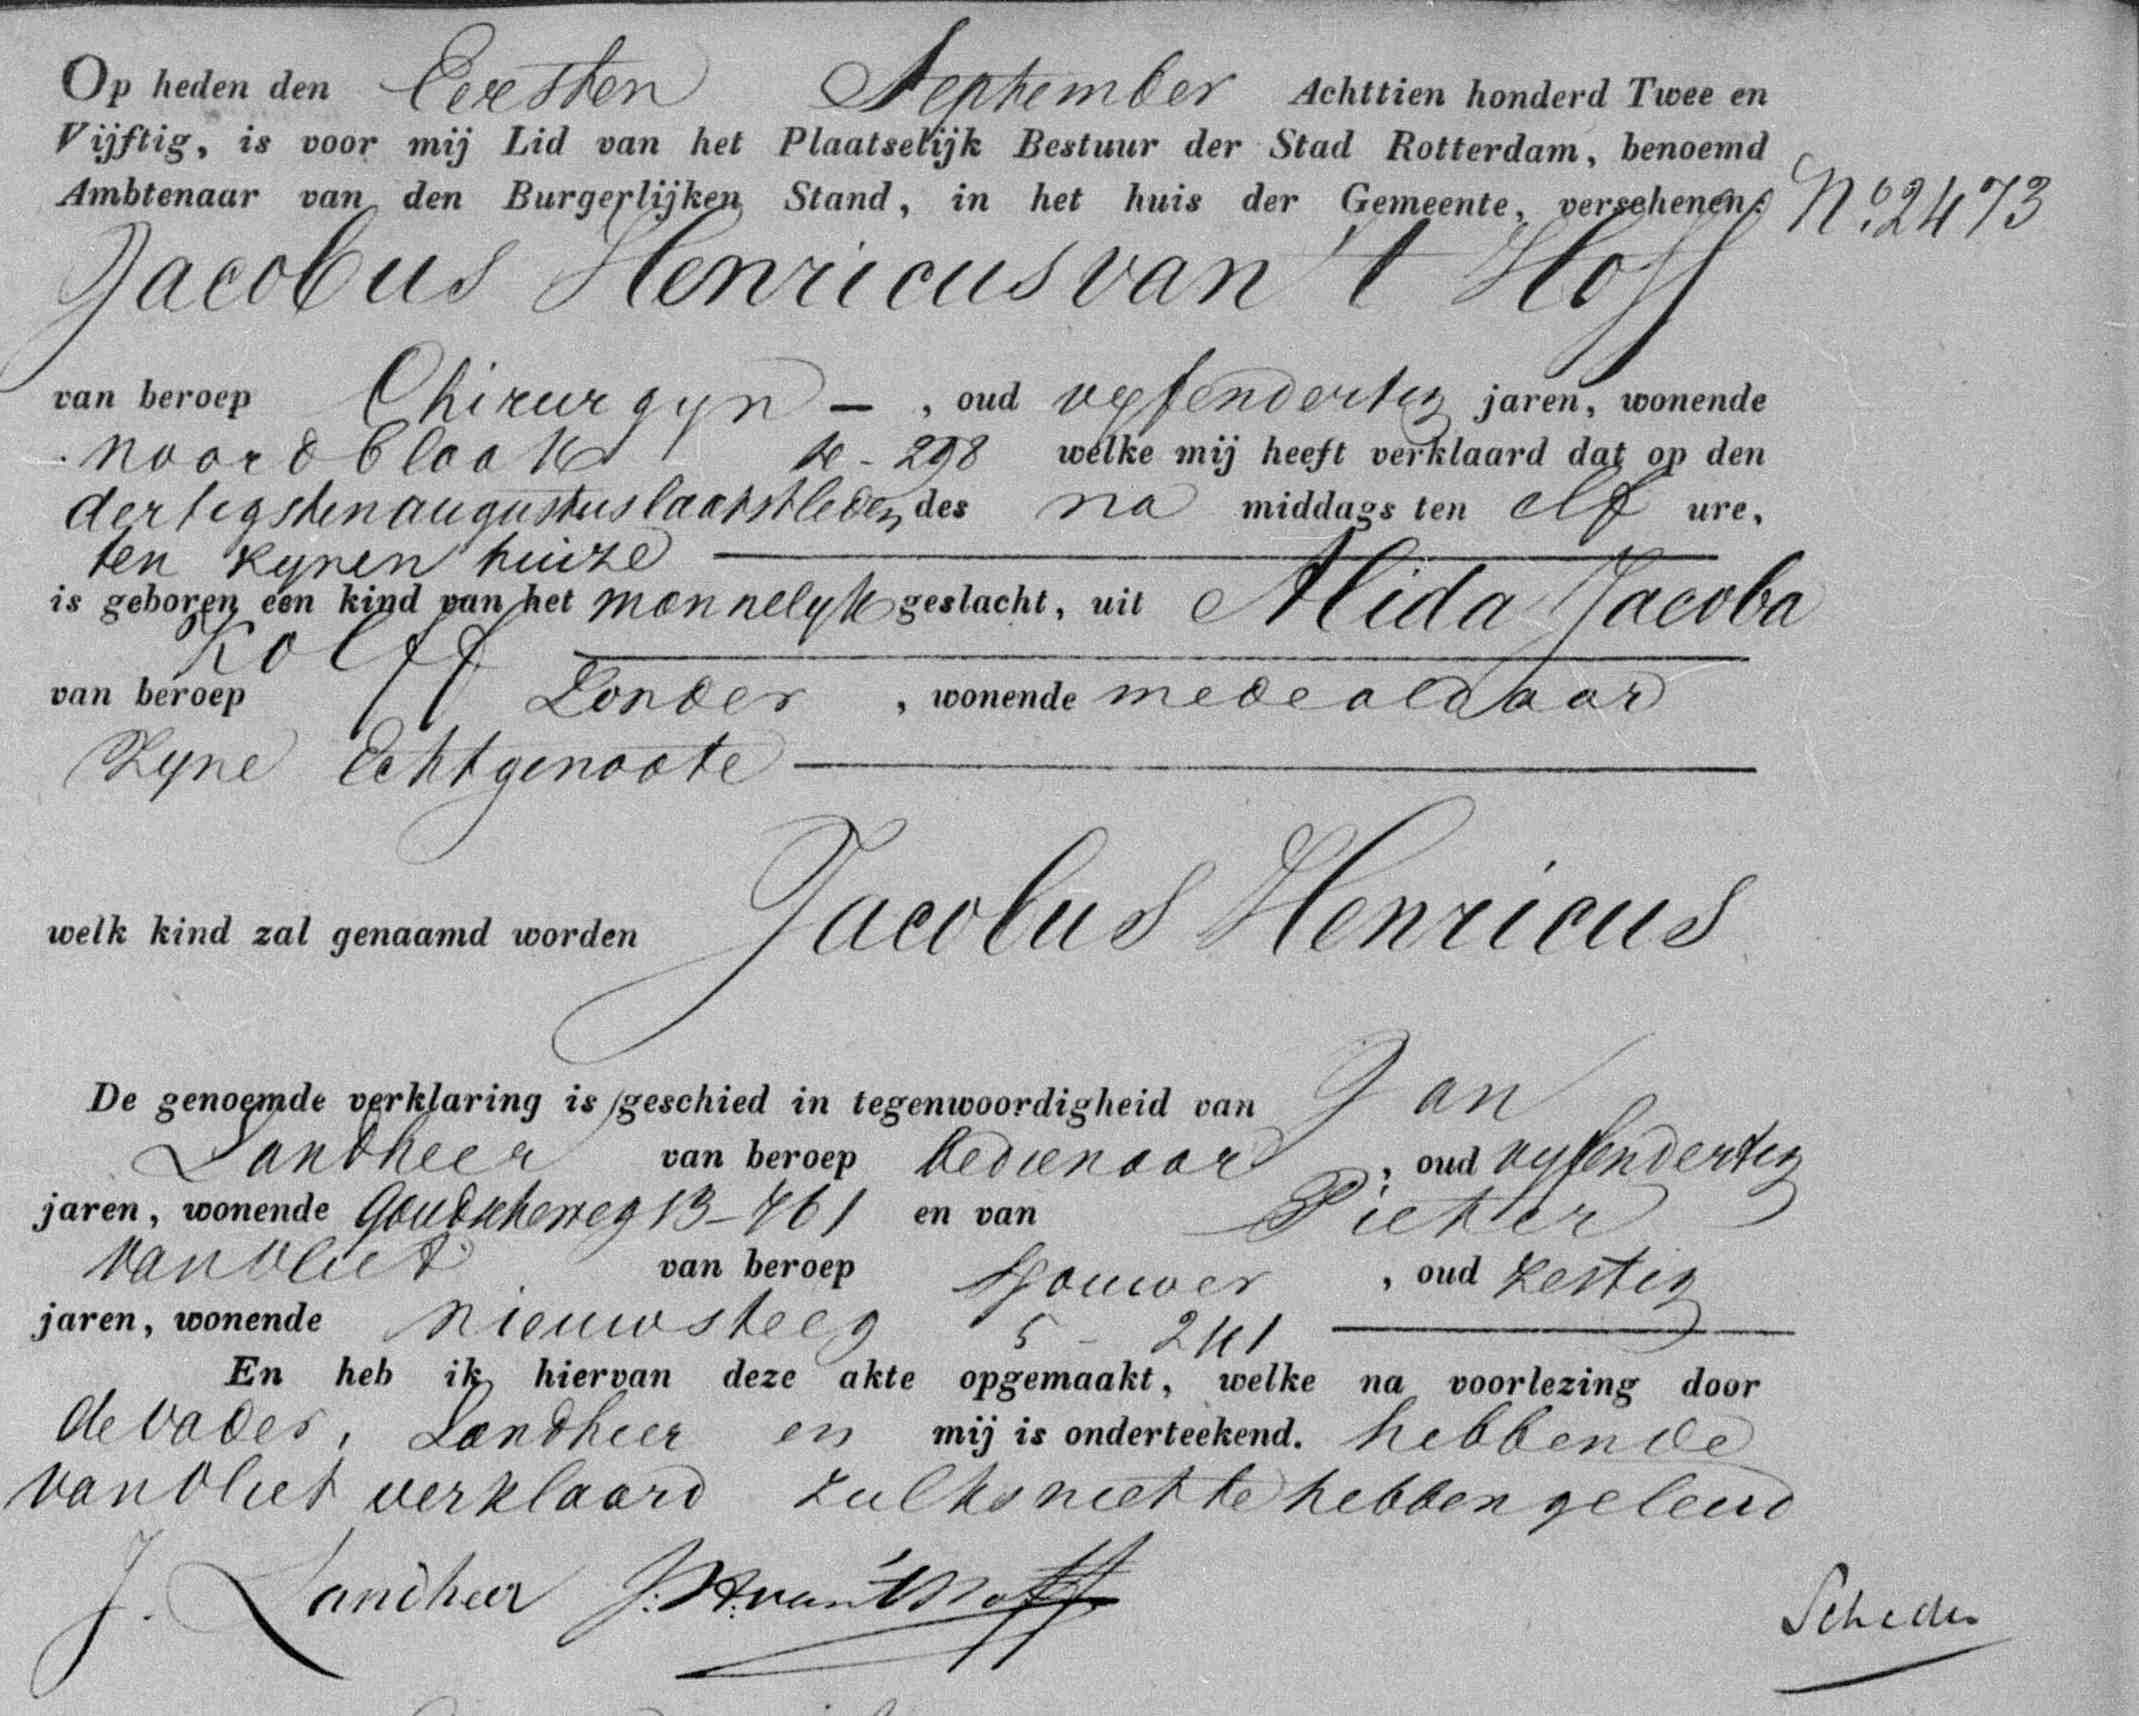 Op heden den Eersten September Achttien honderd Twee en
Vijftig, is voor mij Lid van het Plaatselijk Bestuur der Stad Rotterdam, benoemd
Ambtenaar van den Burgerlijken Stand, in het huis der Gemeente, verschenen: No. 2473
Jacobus Henricus van 't Hoff
van beroep Chirurgyn – , oud vyfendertig jaren, wonende
noordblaak 14 - 298 welke mij heeft verklaard dat op den
dertigsten augustus laatstleden des na middags ten elf ure,
ten zynen huize
is geboren een kind van het mannelyk geslacht, uit Alida Jacoba
Kolff
van beroep Zonder , wonende mede aldaar
Zyne Echtgenoote
welk kind zal genaamd worden Jacobus Henricus
De genoemde verklaring is geschied in tegenwoordigheid van Jan
Landheer van beroep bedienaar , oud vyfendertig
jaren, wonende Goudscheweg 13-761 en van Pieter
van Vliet van beroep sjouwer , oud zestig
jaren, wonende nieuwsteeg 5 - 241
En heb ik hiervan deze akte opgemaakt, welke na voorlezing door
de vader, Landheer en mij is onderteekend. hebbende
van Vliet verklaard zulks niet te hebben geleerd
J. Landheer J: H: van 't Hoff